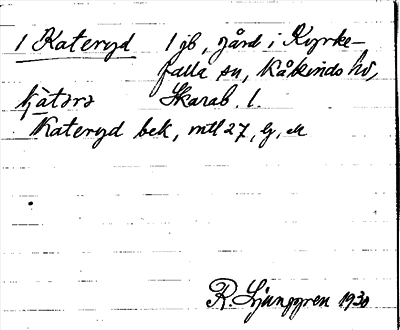 1 Kateryd 1 jb, gård i Kyrke-
falla sn, Kåkinds hd,
Skarab. l.
Kateryd bek, mtl 27, G, A
R. Ljunggren 1930